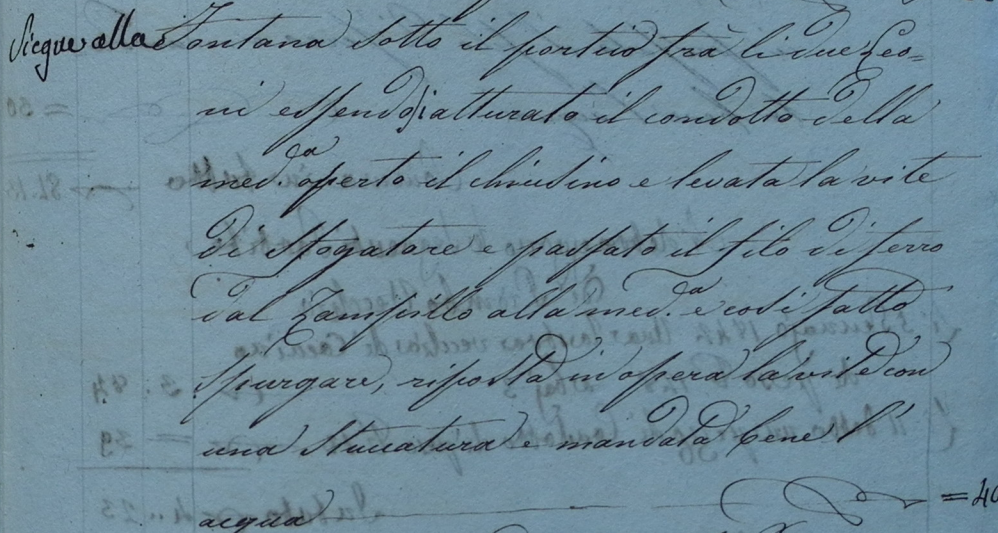 Siegue alla Fontana sotto il portico frà li due Leo=
ni essendosi atturato il condotto della
med.da aperto il chiusino e levata la vite
di sfogatore e passato il filo di ferro
dal Zampillo alla med.a e così fatto
spurgare, riposta in opera la vite con
una stuccatura e mandata bene l'
acqua = 40